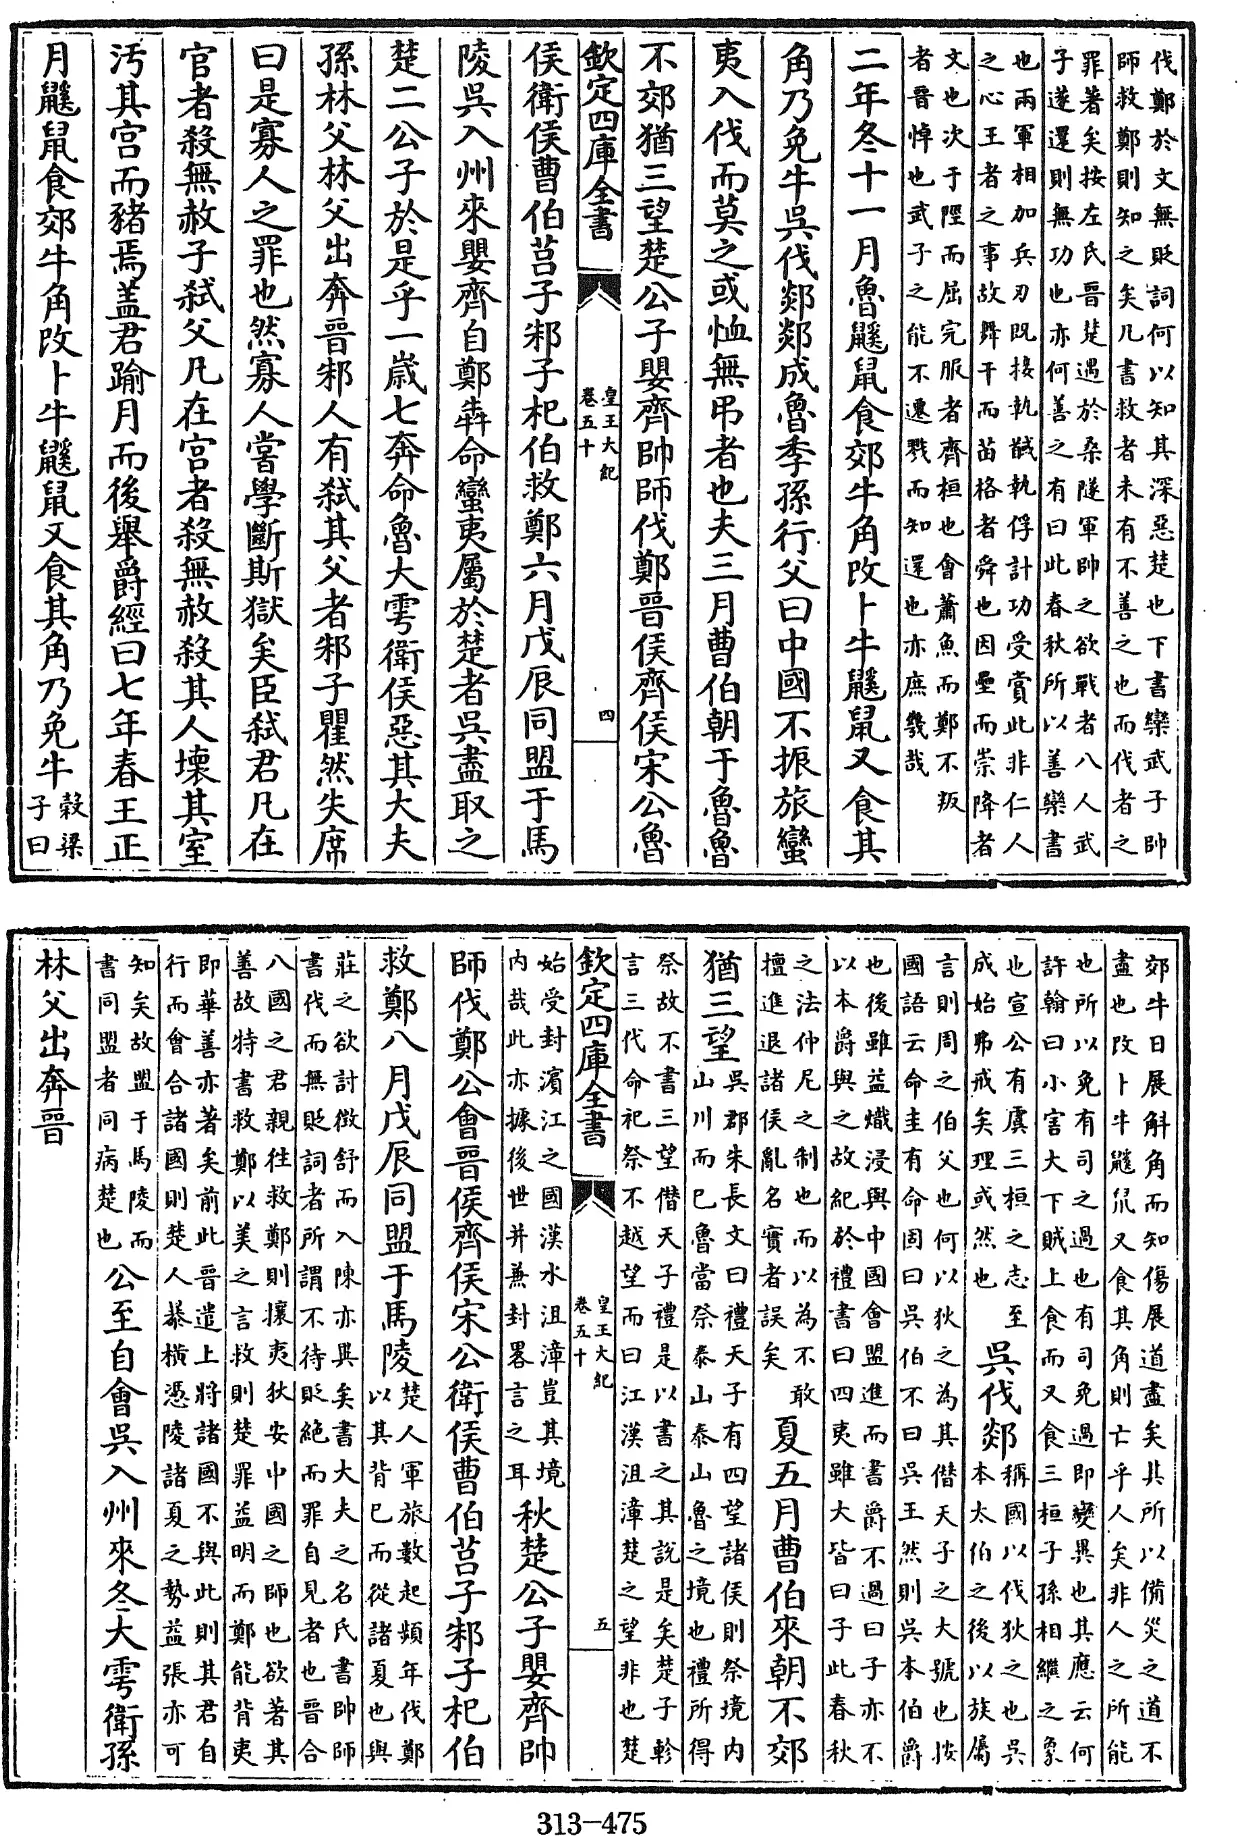 伐鄭於文無貶詞何以知其深惡楚也下書欒武子帥
師救鄭則知之矣凡書救者未有不善之也而伐者之
罪著矣按左氏晉楚遇於桑隧軍帥之欲戰者八人武
子遂還則無功也亦何善之有曰此春秋所以善欒書
也兩軍相加兵刃既接執馘執俘計功受賞此非仁人
之心王者之事故舞干而苗格者舜也因壘而崇降者
文也次于陘而屈完服者齊桓也會蕭魚而鄭不叛
者晉悼也武子之能不遷戮而知還也亦庶幾哉
二年冬十一月魯鼷鼠食郊牛角改卜牛鼷鼠又食其
角乃免牛吳伐郯郯成魯季孫行父曰中國不振旅蠻
夷入伐而莫之或恤無弔者也夫三月曹伯朝于魯魯
不郊猶三望楚公子嬰齊帥師伐鄭晉侯齊侯宋公魯
欽定四庫全書
皇王大紀
卷五十
四
侯衛侯曹伯莒子邾子杞伯救鄭六月戊辰同盟于馬
陵吳入州來嬰齊自鄭犇命蠻夷屬於楚者吳盡取之
楚二公子於是乎一歲七奔命魯大雩衛侯惡其大夫
孫林父林父出奔晉邾人有弒其父者邾子瞿然失席
曰是寡人之罪也然寡人嘗學斷斯獄矣臣弒君凡在
官者殺無赦子弒父凡在宮者殺無赦殺其人壞其室
汚其宮而豬焉蓋君踰月而後舉爵經曰七年春王正
月鼷鼠食郊牛角改卜牛鼷鼠又食其角乃免牛
穀梁
子曰
郊牛日展斛角而知傷展道盡矣其所以備災之道不
盡也改卜牛鼷鼠又食其角則亡乎人矣非人之所能
也所以免有司之過也有司免過即變異也其應云何
許翰曰小害大下賊上食而又食三桓子孫相繼之象
也宣公有虞三桓之志至
成始弗戒矣理或然也
吳伐郯
稱國以伐狄之也吳
本太伯之後以族屬
言則周之伯父也何以狄之為其僭天子之大號也按
國語云命圭有命固曰吳伯不曰吳王然則吳本伯爵
也後雖益熾浸與中國會盟進而書爵不過曰子亦不
以本爵與之故紀於禮書曰四夷雖大皆曰子此春秋
之法仲尼之制也而以為不敢
擅進退諸侯亂名實者誤矣
夏五月曹伯來朝不郊
猶三望
吳郡朱長文曰禮天子有四望諸侯則祭境內
山川而已魯當祭泰山泰山魯之境也禮所得
祭故不書三望僭天子禮是以書之其說是矣楚子軫
言三代命祀祭不越望而曰江漢沮漳楚之望非也楚
欽定四庫全書
皇王大紀
卷五十
五
始受封濱江之國漢水沮漳豈其境
內哉此亦據後世并兼封畧言之耳
秋楚公子嬰齊帥
師伐鄭公會晉侯齊侯宋公衛侯曹伯莒子邾子杞伯
救鄭八月戊辰同盟于馬陵
楚人軍旅數起頻年伐鄭
以其背已而從諸夏也與
莊之欲討徵舒而入陳亦異矣書大夫之名氏書帥師
書伐而無貶詞者所謂不待貶絕而罪自見者也晉合
八國之君親往救鄭則攘夷狄安中國之師也欲著其
善故特書救鄭以美之言救則楚罪益明而鄭能背夷
即華善亦著矣前此晉遣上將諸國不與此則其君自
行而會合諸國則楚人暴橫憑陵諸夏之勢益張亦可
知矣故盟于馬陵而
書同盟者同病楚也
公至自會吳入州來冬大雩衛孫
林父出奔晉
313-475